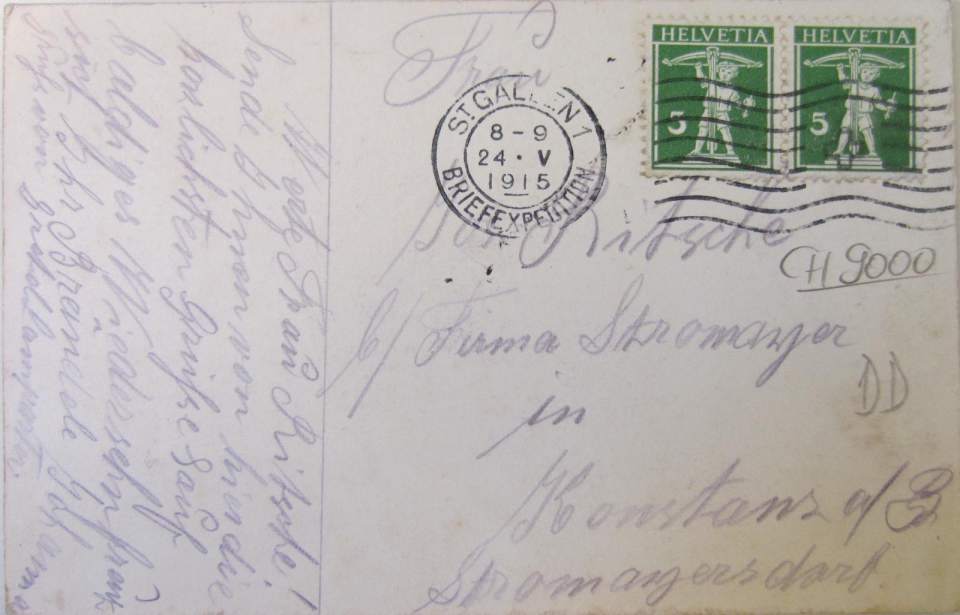 Werte Frau Ritsche!
Sende Ihnen von hier die
herzlichsten Grüße. Auf
baldiges Wiedersehn freut
sich Ihr Johanna
Gruß von
Frau
HELVETIA
HELVETIA
5
5
ST GALLEN 1
8 - 9
24 · V
1915
BRIEFEXPEDITION
Ritsche
CH 9000
b/ Firma Stromayer
DD
in
Konstanz a/B
Stromayersdorf.